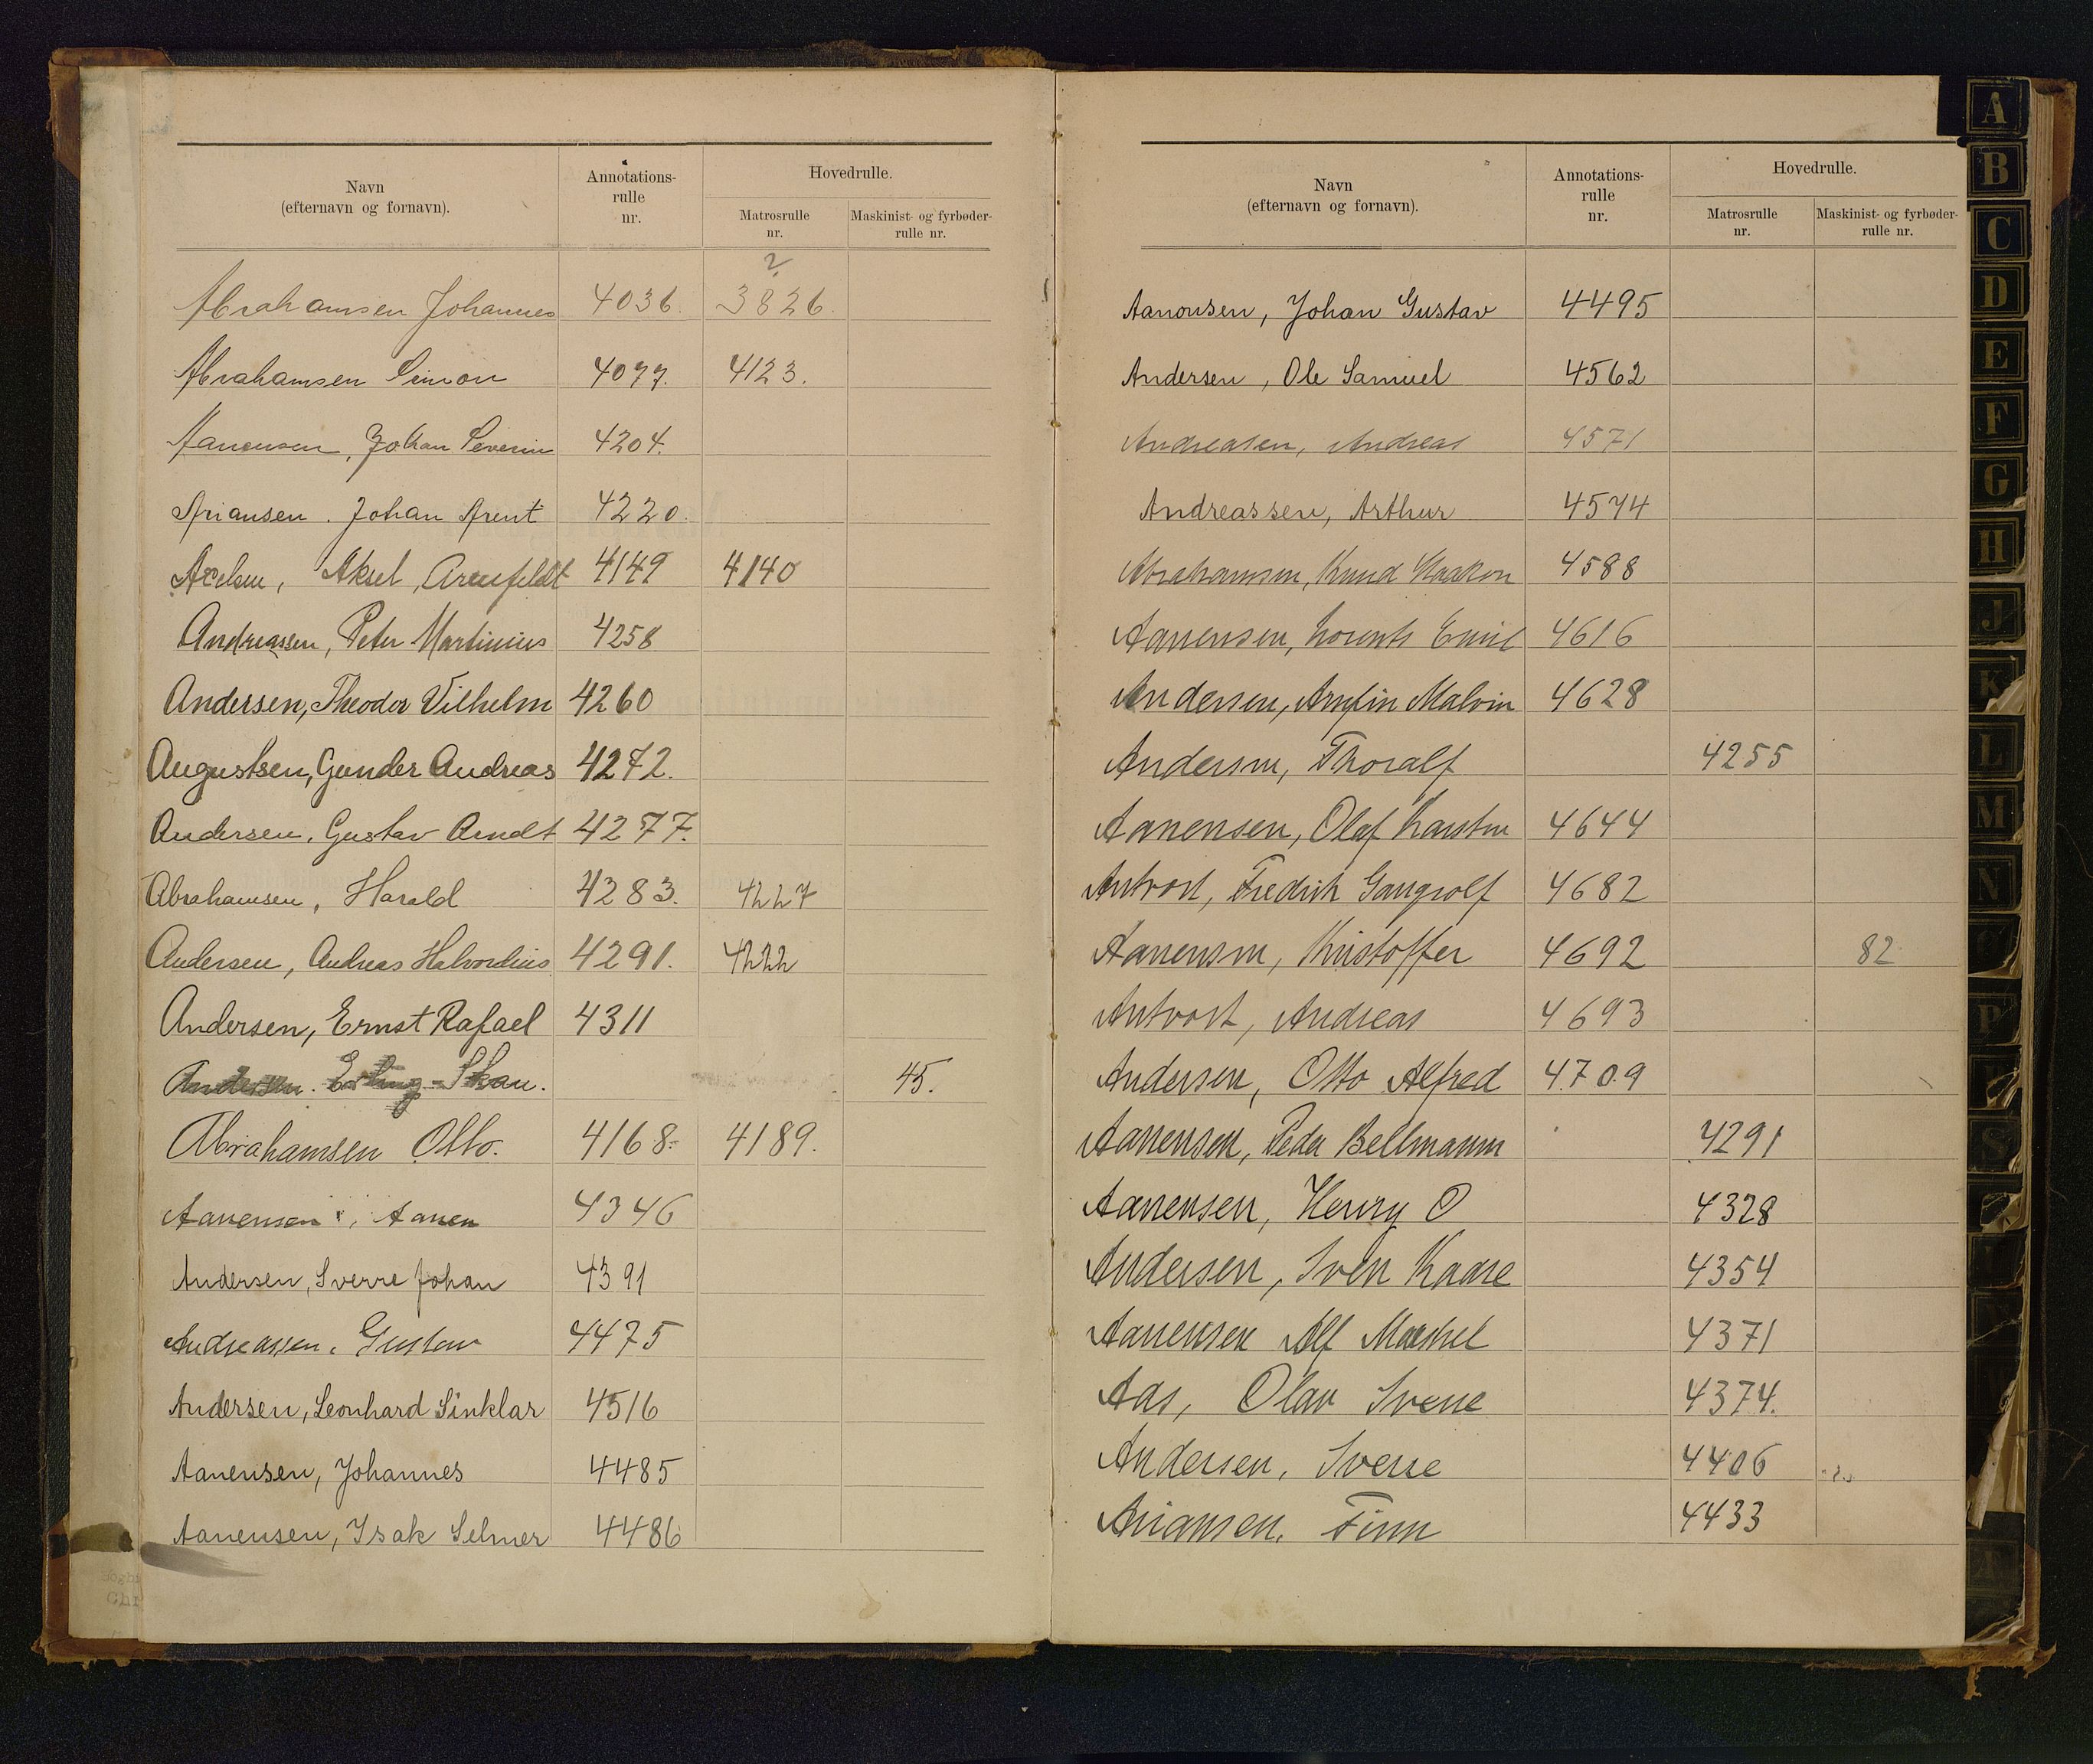 Navn
(efternavn og fornavn).
Annotations-
rulle
nr.
Hovedrulle.
Matrosrulle
nr.
Maskinist- og fyrbøder-
rulle nr.
?
Abrahamsen Johannes 4036. 3826.
Abrahamsen Simon 4077. 4123.
Aanensen, Johan Severin 4204.
Ariansen. Johan Arent 4220.
Axelsen, Aksel Arenfeldt 4149 4140
Andreassen, Peter Martinius 4258
Andersen, Theodor Vilhelm 4260
Augustsen, Gunder Andreas 4272.
Andersen, Gustav Arndt 4277.
Abrahamsen, Harald 4283. 4227
Andersen, Andreas Halvordius 4291. 4222
Andersen, Ernst Rafael 4311
Andersen. Erling Skau. 45.
Abrahamsen Otto. 4168. 4189.
Aanensen, Aanen 4346
Andersen, Sverre Johan 4391
Andreassen, Gustav 4475
Andersen, Leonhard Sinklar 4516
Aanensen, Johannes 4485
Aanensen, Isak Selmer 4486
Navn
(efternavn og fornavn).
Annotations-
rulle
nr.
Hovedrulle.
Matrosrulle
nr.
Maskinist- og fyrbøder-
rulle nr.
Aanonsen, Johan Gustav 4495
Andersen, Ole Samuel 4562
Andreasen, Andreas 4571
Andreassen, Arthur 4574
Abrahamsen, Knud Haakon 4588
Aanensen, Lorents Emil 4616
Andersen, Arnfin Malvin 4628
Andersen, Thoralf 4255
Aanensen, Olaf Karsten 4644
Antvort, Fredrik Gangrolf 4682
Aanensen, Kristoffer 4692 82
Antvort, Andreas 4693
Andersen, Otto Alfred 4709
Aanensen, Peder Bellmann 4291
Aanensen, Henry O 4328
Andersen, Sven Kaare 4354
Aanensen Alf 4371
Aas, Olav Sverre 4374.
Andersen, Sverre 4406
Ariansen, Finn 4433
A
B
C
D
E
F
G
H
J
K
L
M
N
P
S